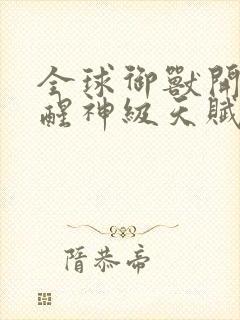 全球御獸開
醒神級天賦
隋恭帝